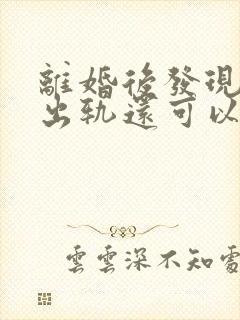 離婚後發現
出轨還可以
雲雲深不知處